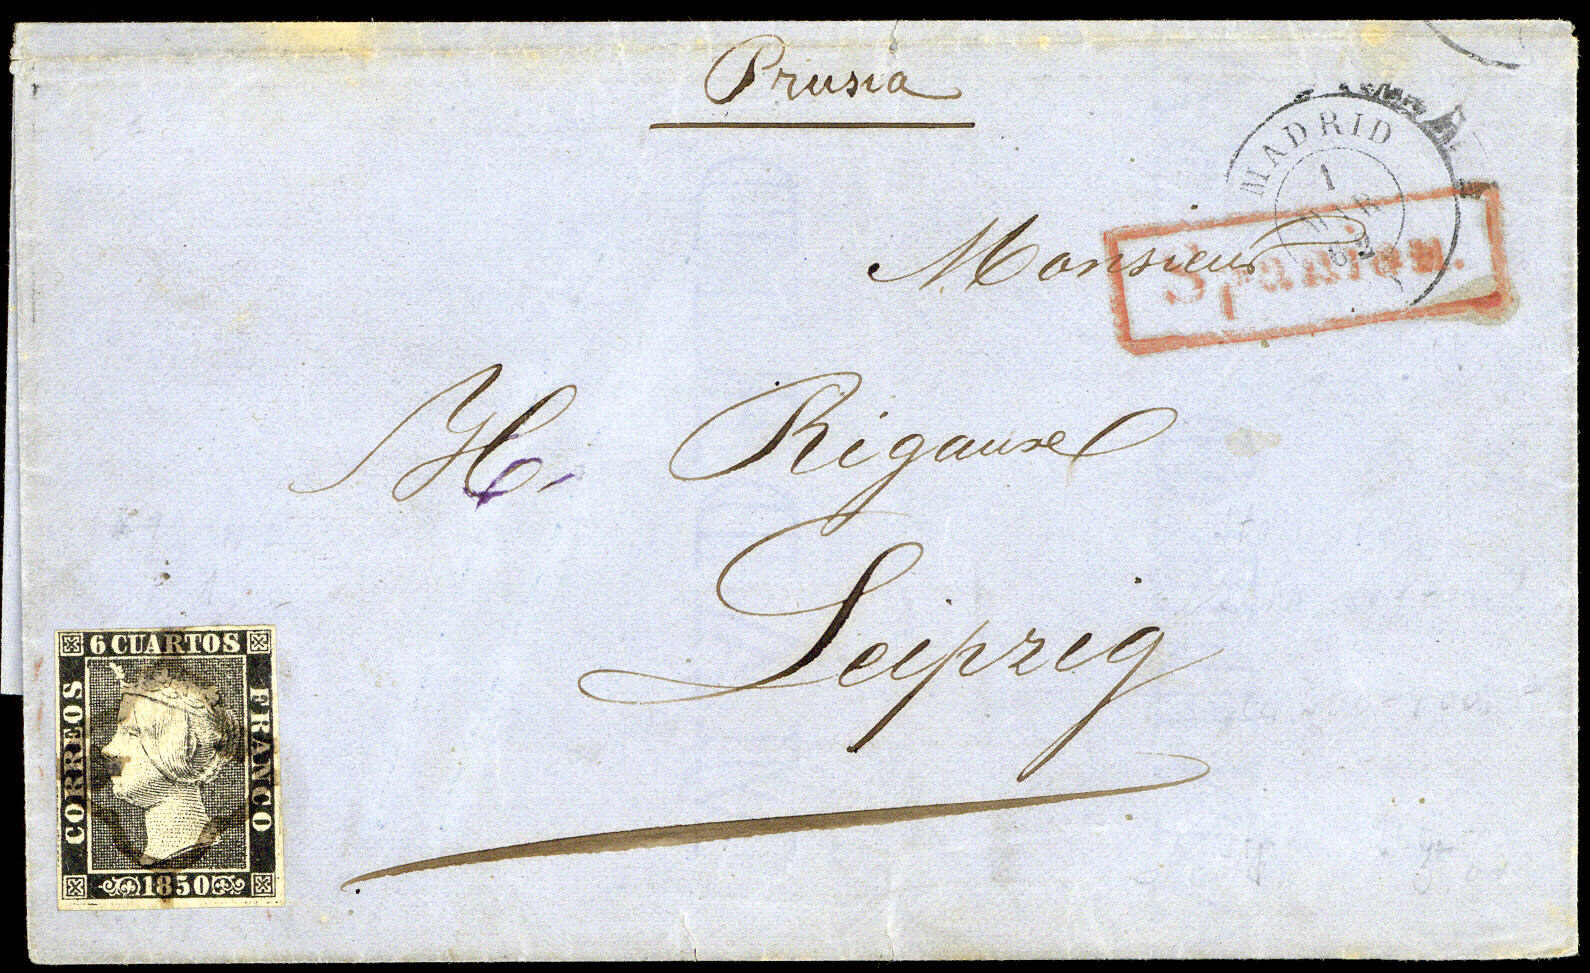 Prusia
MADRID
1
MAR
Spanien.
Monsieur
H. Rigaux
Leipzig
6 CUARTOS
CORREOS
FRANCO
1850